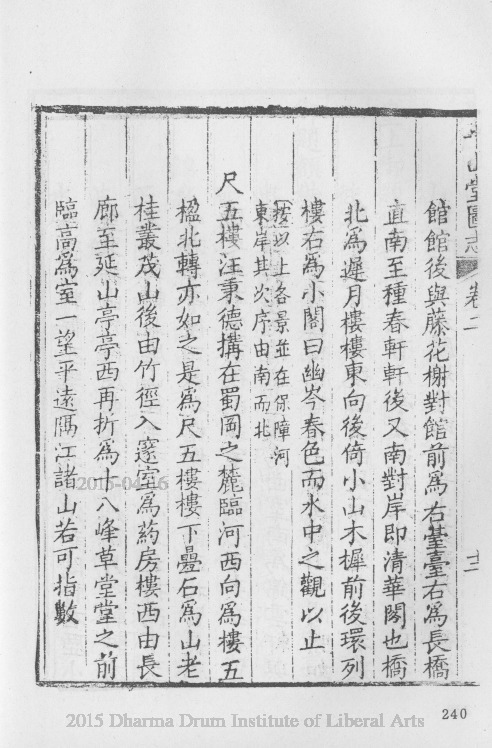 平山堂圖志 卷二 十二
館館後與藤花榭對館前爲右臺臺右爲長橋
直南至種春軒軒後又南對岸即清華閣也橋
北爲遲月樓樓東向後倚小山木樨前後環列
樓右爲小閣曰幽岑春色而水中之觀以止
按以上各景並在保障河
東岸其次序由南而北
尺五樓汪秉德搆在蜀岡之麓臨河西向爲樓五
楹北轉亦如之是爲尺五樓樓下疊石爲山老
桂叢茂山後由竹徑入邃室爲药房樓西由長
廊至延山亭亭西再折爲十八峰草堂堂之前
臨高爲室一望平遠隔江諸山若可指數
2015-04-16
240
2015 Dharma Drum Institute of Liberal Arts